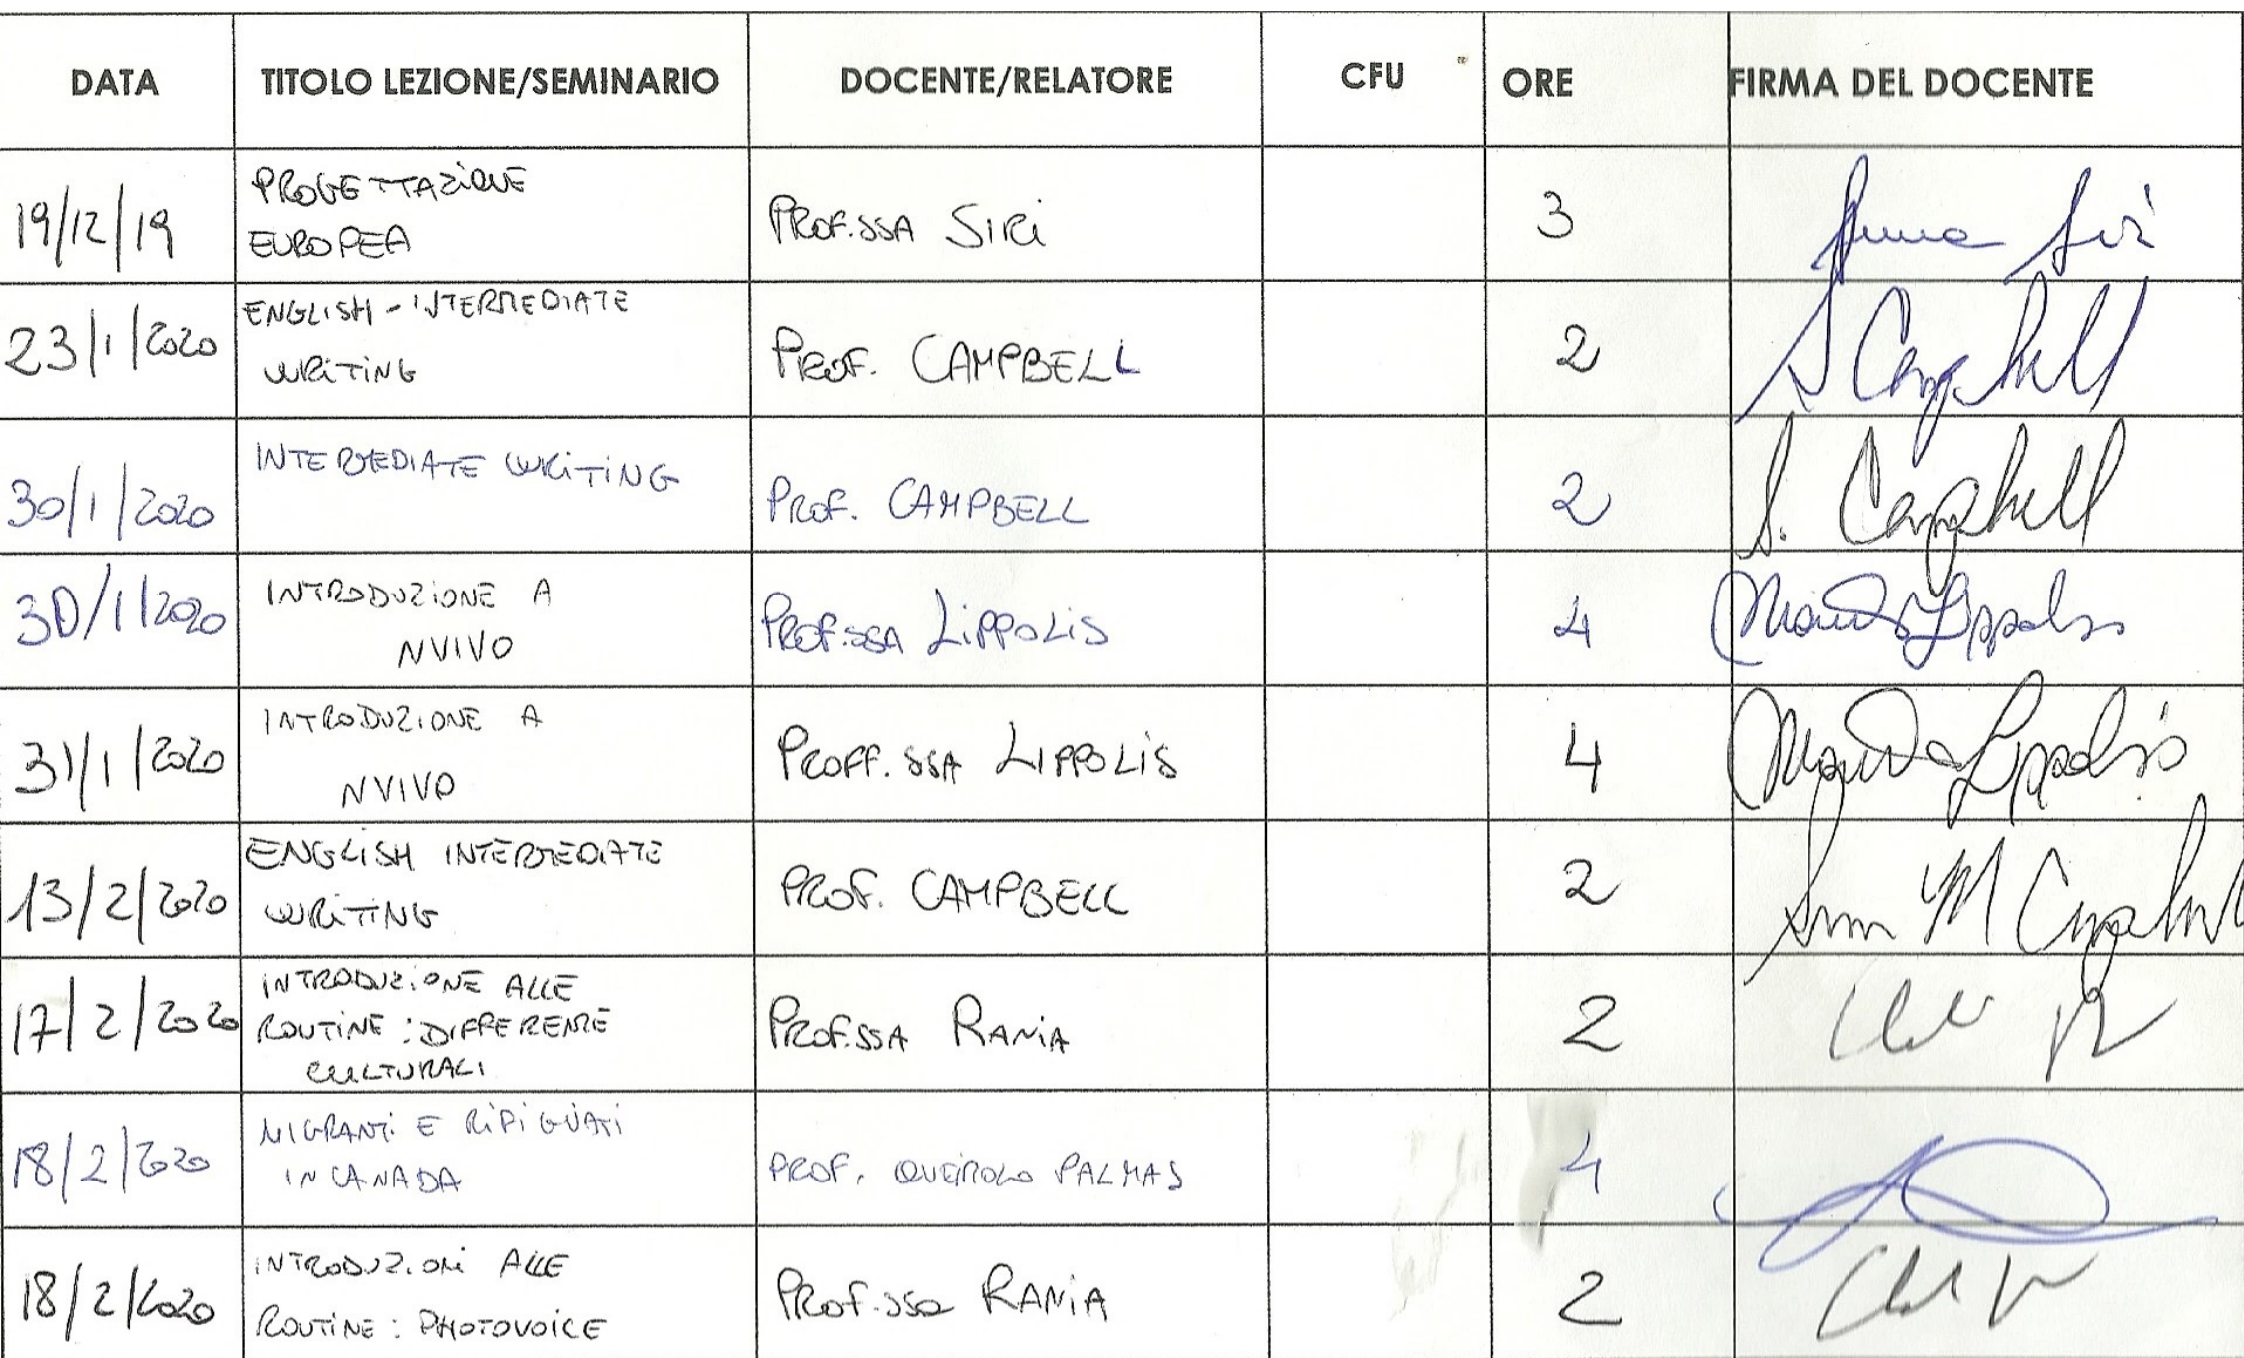 DATA TITOLO LEZIONE/SEMINARIO DOCENTE/RELATORE CFU ORE FIRMA DEL DOCENTE
19/12/19 PROGETTAZIONE EUROPEA PROF.SSA SIRI 3 Anna Siri
23/1/2020 ENGLISH - INTERMEDIATE WRITING PROF. CAMPBELL 2 S Campbell
30/1/2020 INTERMEDIATE WRITING PROF. CAMPBELL 2 S. Campbell
30/1/2020 INTRODUZIONE A NVIVO PROF.SSA LIPPOLIS 4 Lippolis
31/1/2020 INTRODUZIONE A NVIVO PROFF.SSA LIPPOLIS 4 Lippolis
13/2/2020 ENGLISH INTERMEDIATE WRITING PROF. CAMPBELL 2 M Campbell
17/2/2020 INTRODUZIONE ALLE ROUTINE: DIFFERENZE CULTURALI PROF.SSA RANIA 2
18/2/2020 MIGRANTI E RIFIGUATI IN CANADA PROF. QUEIROLO PALMAS 4
18/2/2020 INTRODUZIONI ALLE ROUTINE: PHOTOVOICE PROF.SSA RANIA 2